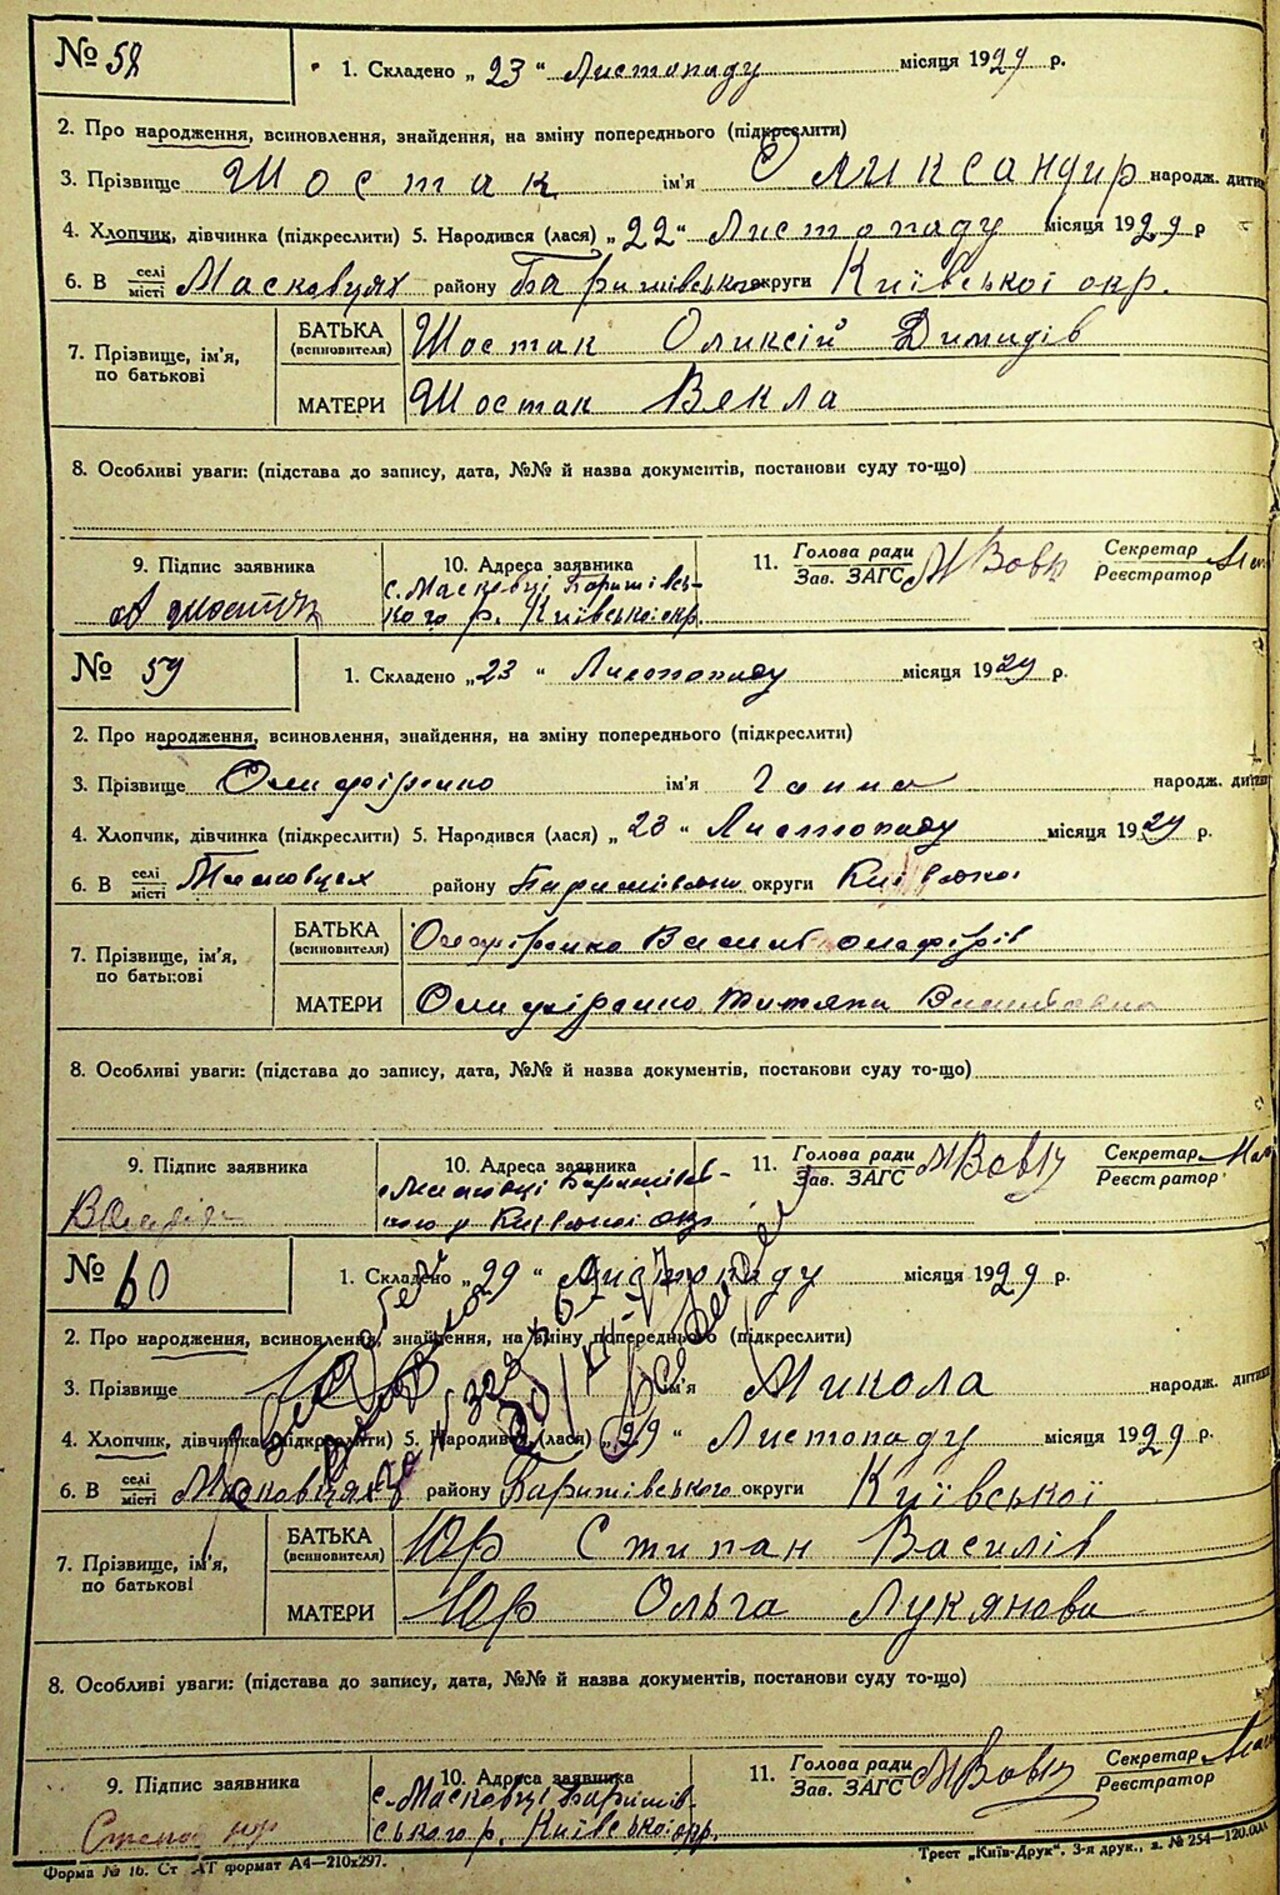 № 58
1. Складено „ 23 “ Листопаду місяця 1929 р.
2. Про народження, всиновлення, знайдення, на зміну попереднього (підкреслити)
3. Прізвище Шостак ім'я Оликсандир народж. дитини
4. Хлопчик, дівчинка (підкреслити) 5. Народився (лася) „ 22 “ Листопаду місяця 1929 р
6. В селі місті Масковцях району Баришівського округи Київської окр.
7. Прізвище, ім'я, по батькові
БАТЬКА (всиновителя) Шостак Оликсій Димидів
МАТЕРИ Шостак Векла
8. Особливі уваги: (підстава до запису, дата, №№ й назва документів, постанови суду то-що)
9. Підпис заявника
А Шостак
10. Адреса заявника
с. Масковці Баришівсь-
кого р. Київської окр.
11. Голова ради Зав. ЗАГС М Вовк Секретар Реєстратор
№ 59
1. Складено „ 23 “ Листопаду місяця 1929 р.
2. Про народження, всиновлення, знайдення, на зміну попереднього (підкреслити)
3. Прізвище ім'я Ганна народж. дитини
4. Хлопчик, дівчинка (підкреслити) 5. Народився (лася) „ 23 “ Листопаду місяця 1929 р.
6. В селі місті Масковцях району округи Київської
7. Прізвище, ім'я, по батькові
БАТЬКА (всиновителя)
МАТЕРИ
8. Особливі уваги: (підстава до запису, дата, №№ й назва документів, постанови суду то-що)
9. Підпис заявника
10. Адреса заявника
Масковці
р Київської окр
11. Голова ради Зав. ЗАГС М Вовк Секретар Реєстратор
№ 60
1. Складено „ 29 “ Листопаду місяця 1929 р.
2. Про народження, всиновлення, знайдення, на зміну попереднього (підкреслити)
3. Прізвище Юр ім'я Микола народж. дитини
4. Хлопчик, дівчинка (підкреслити) 5. Народився (лася) „ 29 “ Листопаду місяця 1929 р.
6. В селі місті Масковцях району Баришівського округи Київської
7. Прізвище, ім'я, по батькові
БАТЬКА (всиновителя) Юр Стипан Василів
МАТЕРИ Юр Ольга Лукянова
8. Особливі уваги: (підстава до запису, дата, №№ й назва документів, постанови суду то-що)
9. Підпис заявника
Степан Юр
10. Адреса заявника
с. Масковці Баришів-
ського р. Київської окр.
11. Голова ради Зав. ЗАГС М Вовк Секретар Реєстратор
Форма № 16. Ст АТ формат А4—210х297.
Трест „Київ-Друк“. 3-я друк., з. № 254—120.000